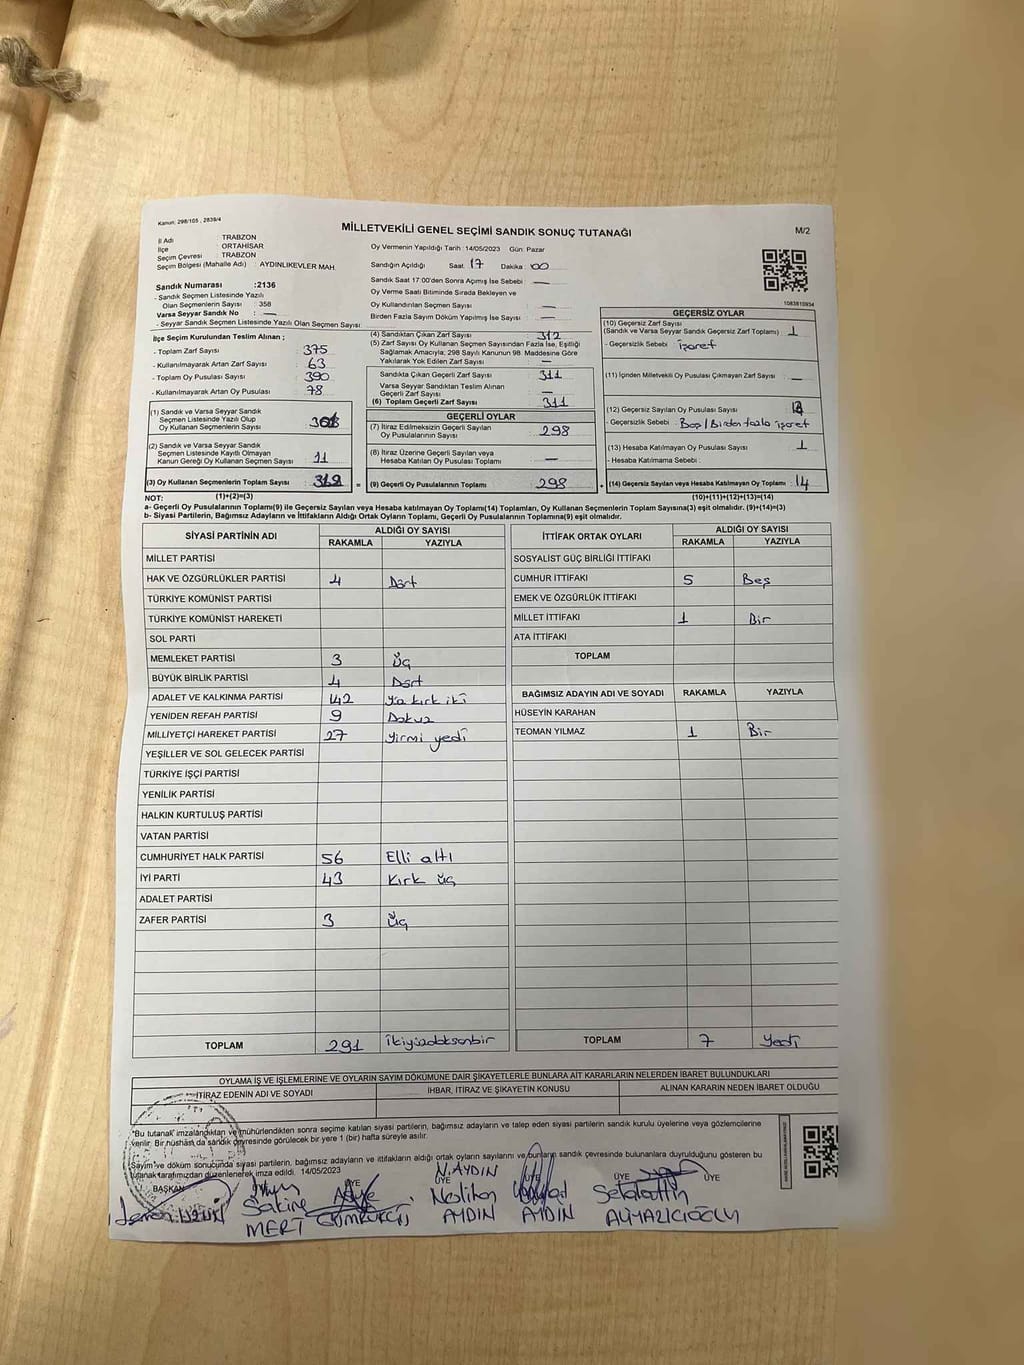 Kanun: 298/105 , 2839/4
MİLLETVEKİLİ GENEL SEÇİMİ SANDIK SONUÇ TUTANAĞI
M/2
İl Adı : TRABZON
İlçe : ORTAHİSAR
Seçim Çevresi : TRABZON
Seçim Bölgesi (Mahalle Adı) : AYDINLIKEVLER MAH.
Sandık Numarası :2136
- Sandık Seçmen Listesinde Yazılı
Olan Seçmenlerin Sayısı : 358
Varsa Seyyar Sandık No : —
- Seyyar Sandık Seçmen Listesinde Yazılı Olan Seçmen Sayısı:
Oy Vermenin Yapıldığı Tarih :14/05/2023 Gün: Pazar
Sandığın Açıldığı Saat: 17 Dakika : 00
Sandık Saat 17:00'den Sonra Açımış İse Sebebi : —
Oy Verme Saati Bitiminde Sırada Bekleyen ve
Oy Kullandırılan Seçmen Sayısı : —
Birden Fazla Sayım Döküm Yapılmış İse Sayısı : —
1083810934
İlçe Seçim Kurulundan Teslim Alınan ;
- Toplam Zarf Sayısı : 375
- Kullanılmayarak Artan Zarf Sayısı : 63
- Toplam Oy Pusulası Sayısı : 390
- Kullanılmayarak Artan Oy Pusulası : 78
(1) Sandık ve Varsa Seyyar Sandık
Seçmen Listesinde Yazılı Olup
Oy Kullanan Seçmenlerin Sayısı :
(2) Sandık ve Varsa Seyyar Sandık
Seçmen Listesinde Kayıtlı Olmayan
Kanun Gereği Oy Kullanan Seçmen Sayısı : 11
(3) Oy Kullanan Seçmenlerin Toplam Sayısı : 312
(4) Sandıktan Çıkan Zarf Sayısı : 312
(5) Zarf Sayısı Oy Kullanan Seçmen Sayısından Fazla İse, Eşitliği
Sağlamak Amacıyla; 298 Sayılı Kanunun 98. Maddesine Göre
Yakılarak Yok Edilen Zarf Sayısı : —
Sandıkta Çıkan Geçerli Zarf Sayısı : 311
Varsa Seyyar Sandıktan Teslim Alınan
Geçerli Zarf Sayısı : —
(6) Toplam Geçerli Zarf Sayısı : 311
GEÇERLİ OYLAR
(7) İtiraz Edilmeksizin Geçerli Sayılan
Oy Pusulalarının Sayısı : 298
(8) İtiraz Üzerine Geçerli Sayılan veya
Hesaba Katılan Oy Pusulası Toplamı : —
= (9) Geçerli Oy Pusulalarının Toplamı : 298
GEÇERSİZ OYLAR
(10) Geçersiz Zarf Sayısı
(Sandık ve Varsa Seyyar Sandık Geçersiz Zarf Toplamı) : 1
- Geçersizlik Sebebi : işaret
(11) İçinden Milletvekili Oy Pusulası Çıkmayan Zarf Sayısı : —
(12) Geçersiz Sayılan Oy Pusulası Sayısı :
- Geçersizlik Sebebi : Boş/Birden fazla işaret
(13) Hesaba Katılmayan Oy Pusulası Sayısı : 1
- Hesaba Katılmama Sebebi :
+ (14) Geçersiz Sayılan veya Hesaba Katılmayan Oy Toplamı : 14
NOT: (1)+(2)=(3)
(10)+(11)+(12)+(13)=(14)
a- Geçerli Oy Pusulalarının Toplamı(9) ile Geçersiz Sayılan veya Hesaba Katılmayan Oy Toplam(14) Toplamları, Oy Kullanan Seçmenlerin Toplam Sayısına(3) eşit olmalıdır. (9)+(14)=(3)
b- Siyasi Partilerin, Bağımsız Adayların ve İttifakların Aldığı Oyların Toplamı, Geçerli Oy Pusulalarının Toplamına(9) eşit olmalıdır.
SİYASİ PARTİNİN ADI ALDIĞI OY SAYISI
RAKAMLA YAZIYLA
MİLLET PARTİSİ
HAK VE ÖZGÜRLÜKLER PARTİSİ 4 Dört
TÜRKİYE KOMÜNİST PARTİSİ
TÜRKİYE KOMÜNİST HAREKETİ
SOL PARTİ
MEMLEKET PARTİSİ 3 Üç
BÜYÜK BİRLİK PARTİSİ 4 Dört
ADALET VE KALKINMA PARTİSİ 142 Yüz kırk iki
YENİDEN REFAH PARTİSİ 9 Dokuz
MİLLİYETÇİ HAREKET PARTİSİ 27 yirmi yedi
YEŞİLLER VE SOL GELECEK PARTİSİ
TÜRKİYE İŞÇİ PARTİSİ
YENİLİK PARTİSİ
HALKIN KURTULUŞ PARTİSİ
VATAN PARTİSİ
CUMHURİYET HALK PARTİSİ 56 Elli altı
İYİ PARTİ 43 Kırk üç
ADALET PARTİSİ
ZAFER PARTİSİ 3 üç
TOPLAM 291 ikiyüzdoksanbir
İTTİFAK ORTAK OYLARI ALDIĞI OY SAYISI
RAKAMLA YAZIYLA
SOSYALIST GÜÇ BİRLİĞİ İTTİFAKI
CUMHUR İTTİFAKI 5 Beş
EMEK VE ÖZGÜRLÜK İTTİFAKI
MİLLET İTTİFAKI 1 Bir
ATA İTTİFAKI
TOPLAM
BAĞIMSIZ ADAYIN ADI VE SOYADI RAKAMLA YAZIYLA
HÜSEYİN KARAHAN
TEOMAN YILMAZ 1 Bir
TOPLAM 7 yedi
OYLAMA İŞ VE İŞLEMLERİNE VE OYLARIN SAYIM DÖKÜMÜNE DAİR ŞİKAYETLERLE BUNLARA AİT KARARLARIN NELERDEN İBARET BULUNDUKLARI
İTİRAZ EDENİN ADI VE SOYADI İHBAR, İTİRAZ VE ŞİKAYETİN KONUSU ALINAN KARARIN NEDEN İBARET OLDUĞU
"Bu tutanak" imzalandıktan ve mühürlendikten sonra seçime katılan siyasi partilerin, bağımsız adayların ve talep eden siyasi partilerin sandık kurulu üyelerine veya gözlemcilerine
verilir. Bir nüshası da sandık çevresinde görülecek bir yere 1 (bir) hafta süreyle asılır.
Sayım ve döküm sonucunda siyasi partilerin, bağımsız adayların ve ittifakların aldığı oyların sayılarını ve bunların sandık çevresinde bulunanlara duyrulduğunu gösteren bu
tutanak tarafımızdan düzenlenerek imza edildi. 14/05/2023
BAŞKAN ÜYE ÜYE ÜYE ÜYE ÜYE
N.AYDIN
Sakine MERT
Neslihan AYDIN
AYDIN
Selahattin ALİYAZICIOĞLU